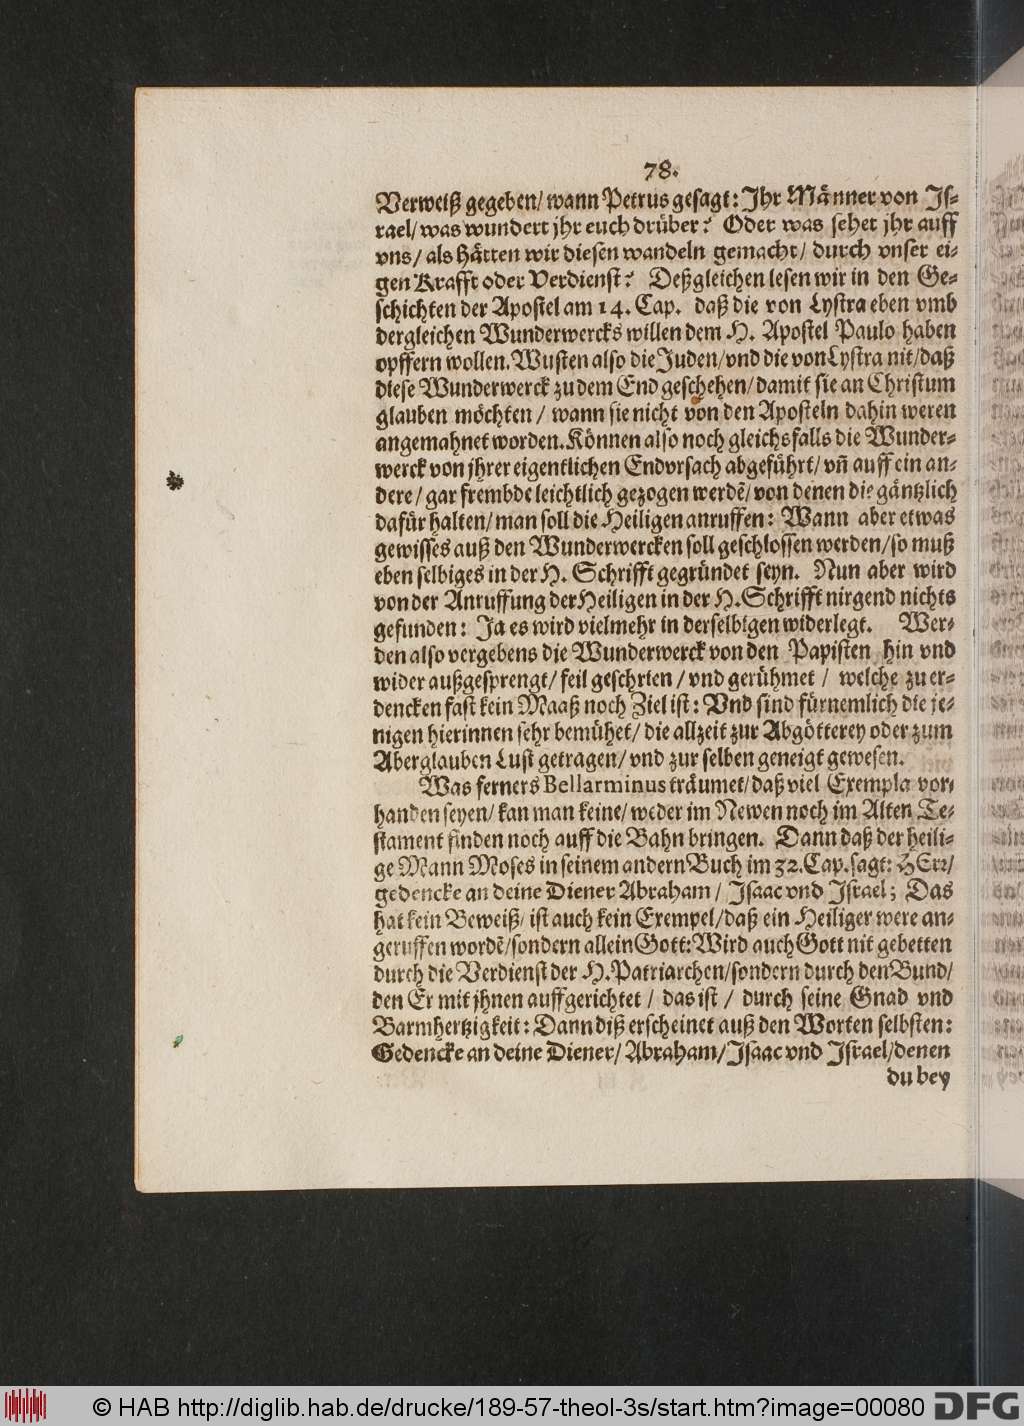 78.
Verweiß gegeben/ wann Petrus gesagt: Ihr Männer von Is-
rael/ was wundert jhr euch drüber? Oder was sehet jhr auff
vns/ als hätten wir diesen wandeln gemacht/ durch vnser ei-
gen Krafft oder Verdienst? Deßgleichen lesen wir in den Ge-
schichten der Apostel am 14. Cap. daß die von Lystra eben vmb
dergleichen Wunderwercks willen dem H. Apostel Paulo haben
opffern wollen. Wusten also die Juden/ vnd die von Lystra nit/ daß
diese Wunderwerck zu dem End geschehen/ damit sie an Christum
glauben möchten/ wann sie nicht von den Aposteln dahin weren
angemahnet worden. Können also noch gleichsfalls die Wunder-
werck von jhrer eigentlichen Endvrsach abgeführt/ vñ auff ein an-
dere/ gar frembde leichtlich gezogen werdẽ/ von denen die gäntzlich
dafür halten/ man soll die Heiligen anruffen: Wann aber etwas
gewisses auß den Wunderwercken soll geschlossen werden/ so muß
eben selbiges in der H. Schrifft gegründet seyn. Nun aber wird
von der Anruffung der Heiligen in der H. Schrifft nirgend nichts
gefunden: Ja es wird vielmehr in derselbigen widerlegt. Wer-
den also vergebens die Wunderwerck von den Papisten hin vnd
wider außgesprengt/ feil geschrien/ vnd gerühmet/ welche zu er-
dencken fast kein Maaß noch Ziel ist: Vnd sind fürnemlich die je-
nigen hierinnen sehr bemühet/ die allzeit zur Abgötterey oder zum
Aberglauben Lust getragen/ vnd zur selben geneigt gewesen.
Was ferners Bellarminus träumet/ daß viel Exempla vor-
handen seyen/ kan man keine/ weder im Newen noch im Alten Te-
stament finden noch auff die Bahn bringen. Dann daß der heili-
ge Mann Moses in seinem andern Buch im 32. Cap. sagt: HErr/
gedencke an deine Diener Abraham/ Isaac vnd Israel; Das
hat kein Beweiß/ ist auch kein Exempel/ daß ein Heiliger were an-
geruffen wordẽ/ sondern allein Gott: Wird auch Gott nit gebetten
durch die Verdienst der H. Patriarchen/ sondern durch den Bund/
den Er mit jhnen auffgerichtet/ das ist/ durch seine Gnad vnd
Barmhertzigkeit: Dann diß erscheinet auß den Worten selbsten:
Gedencke an deine Diener/ Abraham/ Isaac vnd Israel/ denen
du bey
© HAB http://diglib.hab.de/drucke/189-57-theol-3s/start.htm?image=00080
DFG